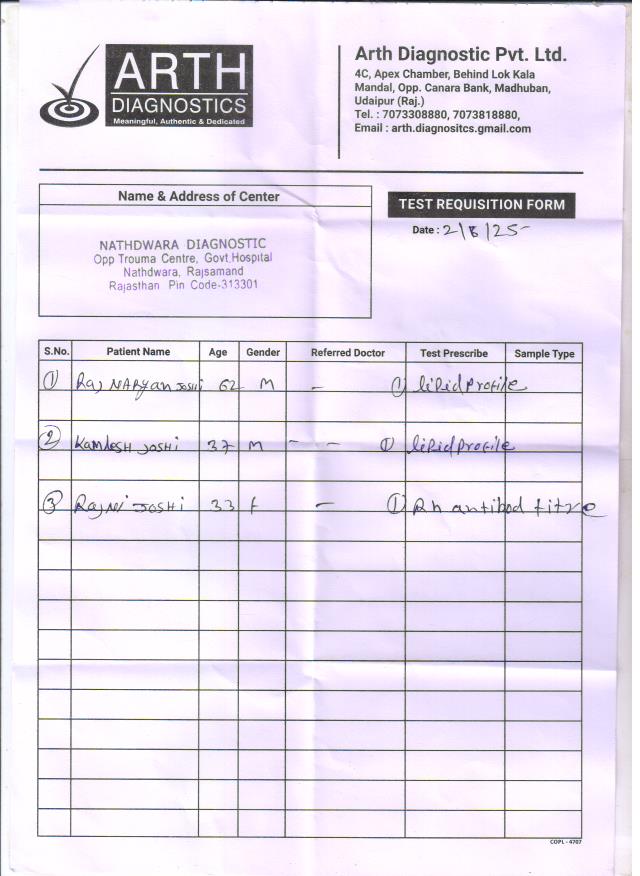 ARTH
DIAGNOSTICS
Meaningful, Authentic & Dedicated
Arth Diagnostic Pvt. Ltd.
4C, Apex Chamber, Behind Lok Kala
Mandal, Opp. Canara Bank, Madhuban,
Udaipur (Raj.)
Tel. : 7073308880, 7073818880,
Email : arth.diagnositcs.gmail.com
Name & Address of Center
NATHDWARA DIAGNOSTIC
Opp Trouma Centre, Govt.Hospital
Nathdwara, Rajsamand
Rajasthan Pin Code-313301
TEST REQUISITION FORM
Date : 2/8/25
S.No. Patient Name Age Gender Referred Doctor Test Prescribe Sample Type
1 Raj NARyan JOSHI 62 M - 1 liPid Profile
2 Kamlesh JOSHI 37 M - - 1 liPid Profile
3 Rajni JOSHI 33 f - 1 Rh antibod titre
COPL - 4707